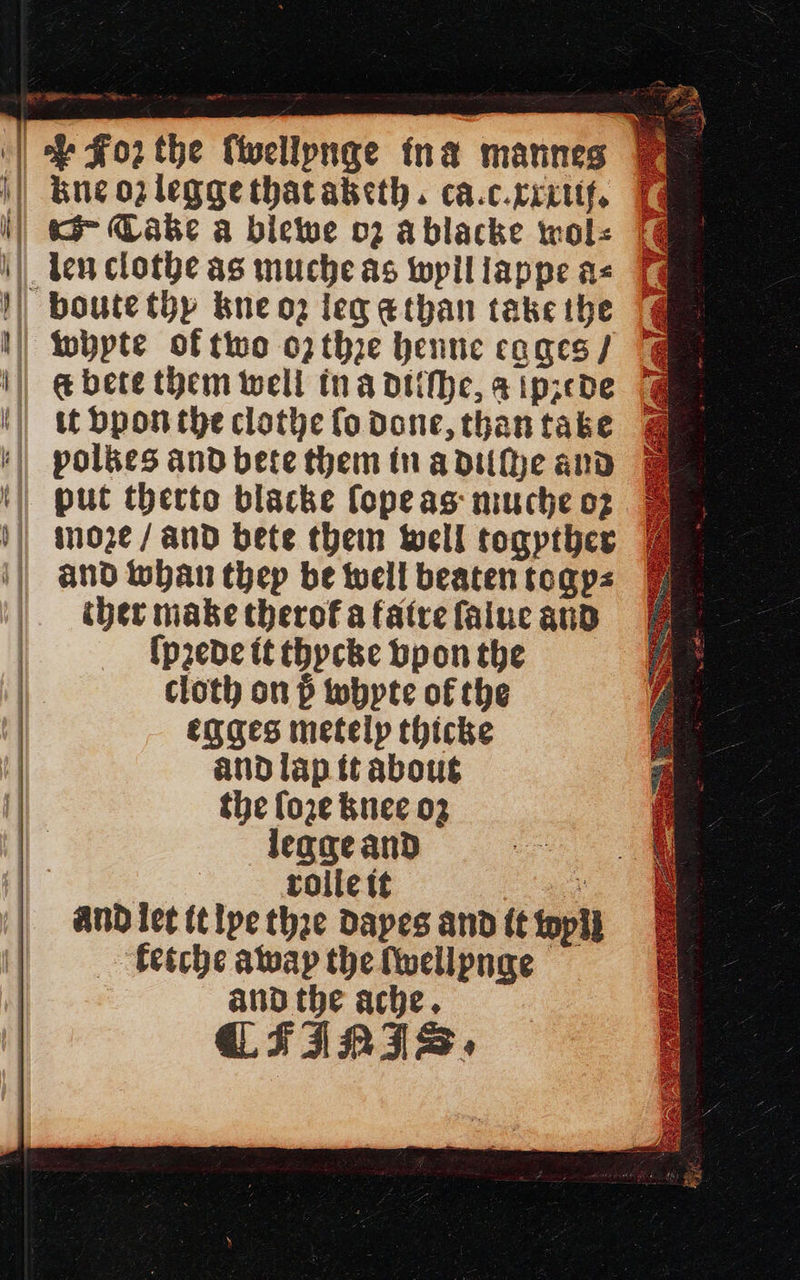 ❧ For the ſwellynge in a mannes
kne or legge that aketh. ca.c.xxxiij.
☞ Take a blewe or a blacke wol⸗
len clothe as muche as wyll lappe a⸗
boute thy kne or leg & than take the
whyte of two or thre henne egges /
& bete them well in a diſſhe, & sprede
it vpon the clothe ſo done, than take
yolkes and bete them in a diſſhe and
put therto blacke ſope as muche or
more / and bete them well togyther
and whan they be well beaten togy⸗
ther make therof a faire ſalue and
ſprede it thycke vpon the
cloth on þͤ whyte of the
egges metely thicke
and lap it about
the ſore knee or
legge and
rolle it
and let it lye thre dayes and it wyll
fetche away the ſwellynge
and the ache.
❡ FINIS.